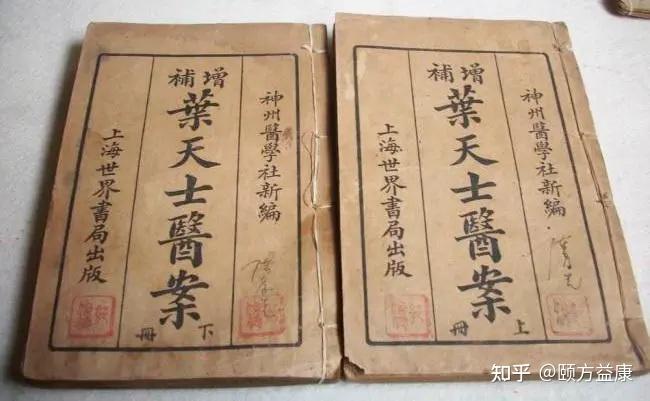 神州醫學社新編
增補
葉天士醫案
下冊
上海世界書局出版
神州醫學社新編
增補
葉天士醫案
上冊
上海世界書局出版
知乎 @颐方益康